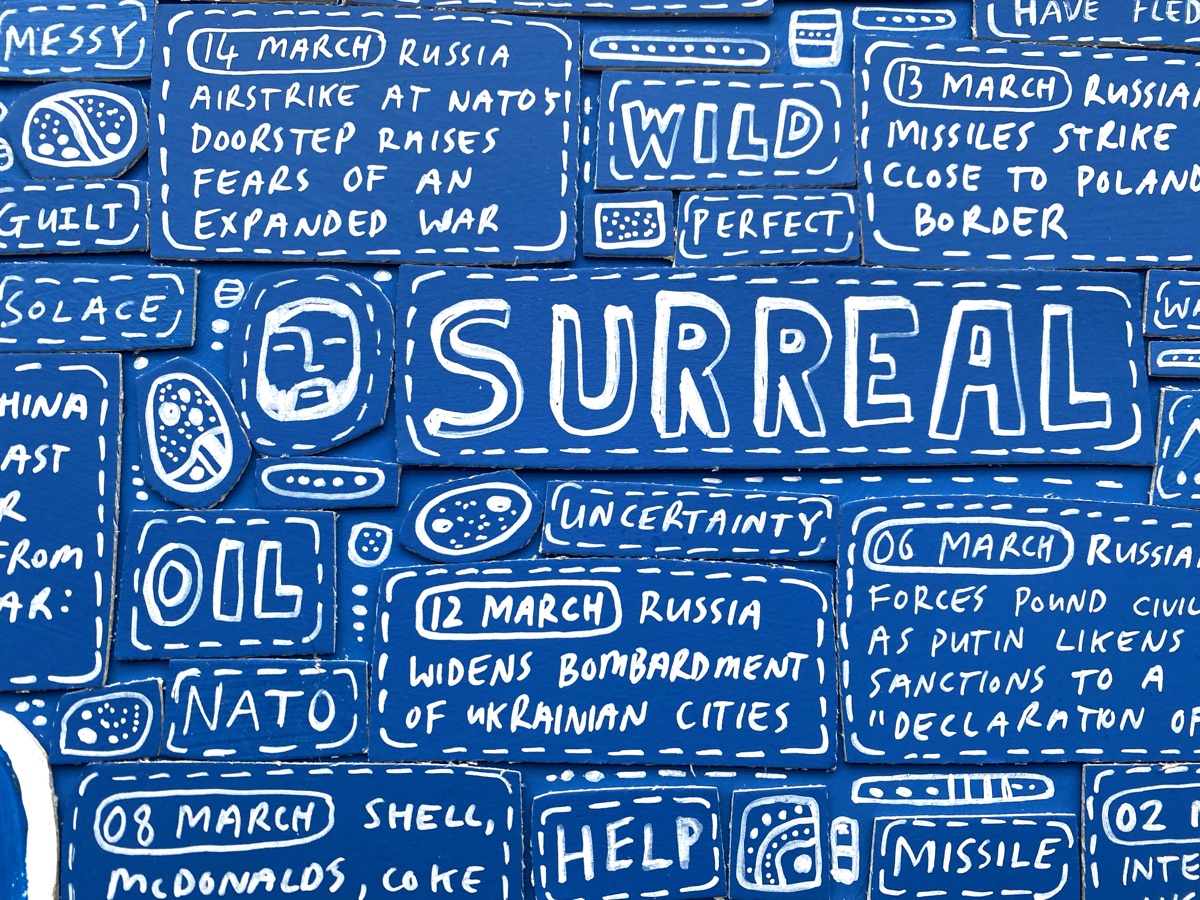 MESSY
14 MARCH RUSSIA
AIRSTRIKE AT NATO'S
DOORSTEP RAISES
FEARS OF AN
EXPANDED WAR
WILD
PERFECT
HAVE FLED
13 MARCH RUSSIAN
MISSILES STRIKE
CLOSE TO POLAND
BORDER
GUILT
SOLACE
SURREAL
HINA
AST
R
FROM
AR:
OIL
NATO
UNCERTAINTY
12 MARCH RUSSIA
WIDENS BOMBARDMENT
OF UKRAINIAN CITIES
06 MARCH RUSSIA
FORCES POUND CIVIL
AS PUTIN LIKENS
SANCTIONS TO A
"DECLARATION OF
08 MARCH SHELL,
MCDONALDS, COKE
HELP
MISSILE
02
INTE